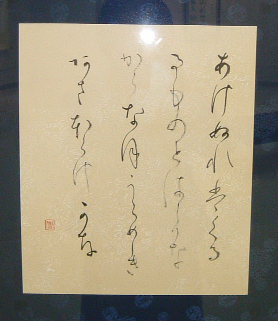 あけぬれはくる
るものとはしりな
からなほうらめしき
あさほらけかな